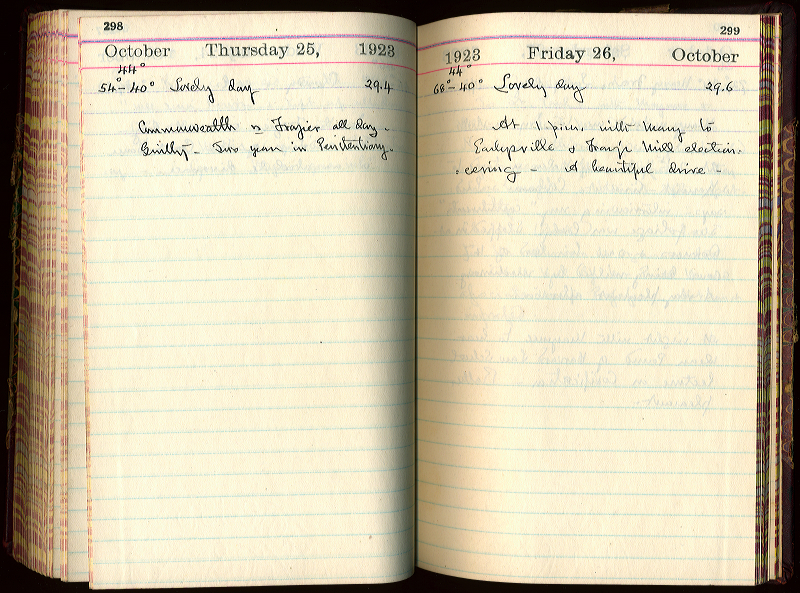 298
October Thursday 25, 1923
44°
54°-40° Lovely day 29.4
Commonwealth vs Frazier all day.
Guilty - Two year in Penitentiary.
299
1923 Friday 26, October
44°
68°-40° Lovely day 29.6
At 1 p.m. with Mary to
Earlysville & Free Mill election-
eering - A beautiful drive -